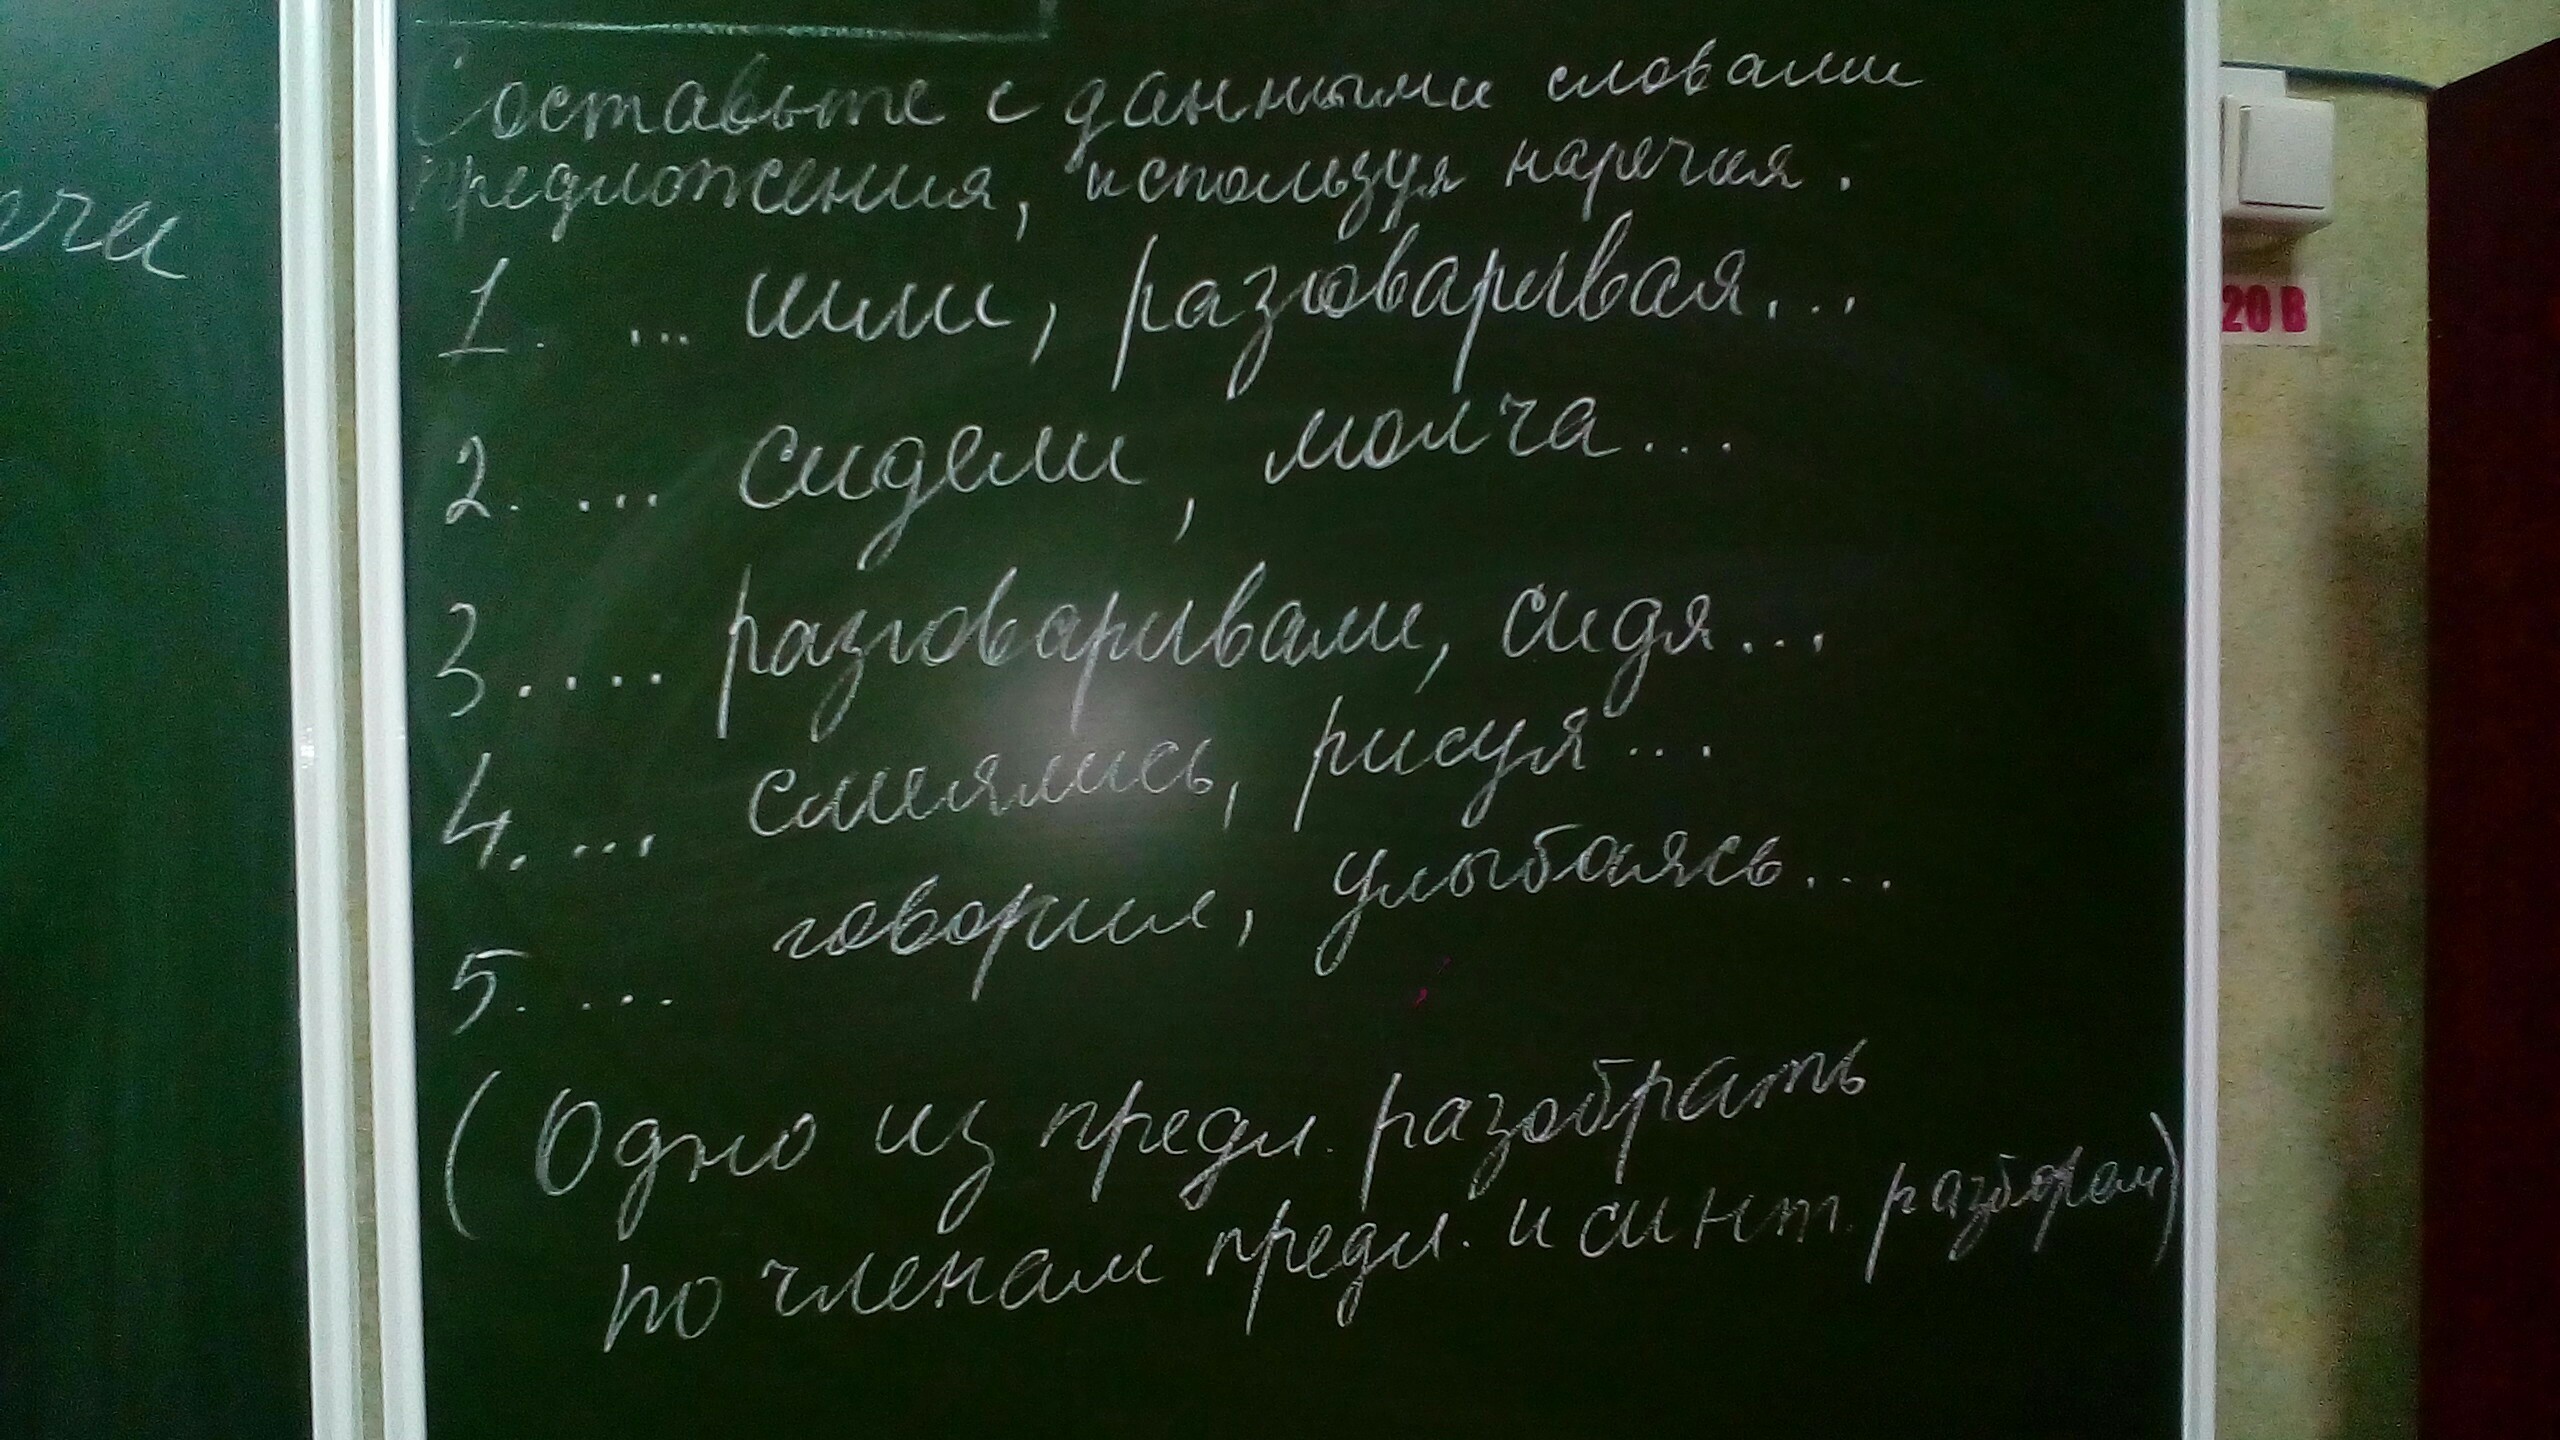 Составьте с данными словами
предложения, используя наречия.
1. ... шли, разговаривая...
2. ... сидели, молча...
3. ... разговаривали, сидя...
4. ... смеялись, рисуя...
5. ... говорил, улыбаясь...
(Одно из предл. разобрать
по членам предл. и синт. разбором)
ечи
20 В